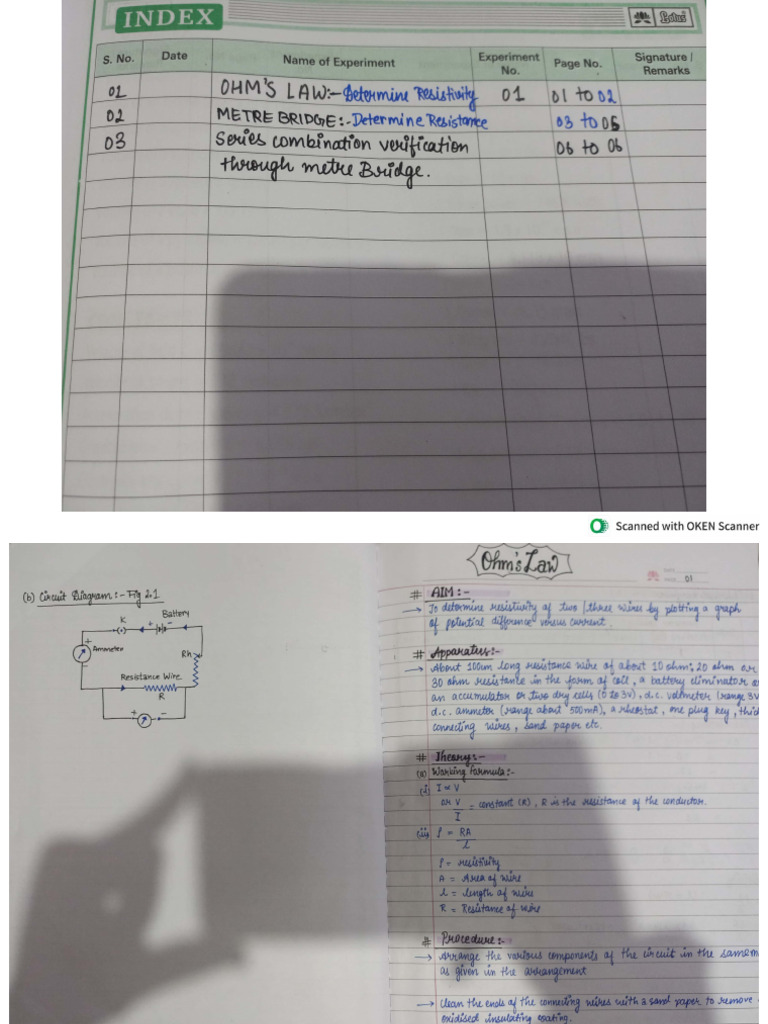 INDEX
Lotus
S. No. Date Name of Experiment Experiment No. Page No. Signature / Remarks
01 OHM'S LAW:- Determine Resistivity 01 01 to 02
02 METRE BRIDGE:- Determine Resistance 03 to 05
03 Series combination verification 06 to 06
through metre Bridge.
Scanned with OKEN Scanner
(b) Circuit Diagram :- Fig 2.1
Battery
K
+ -
+
Ammeter
-
Rh
Resistance Wire
R
+ -
Ohm's Law
01
# AIM :-
→ To determine resistivity of two / three wires by plotting a graph
of potential difference versus current.
# Apparatus:-
→ About 100cm long resistance wire of about 10 ohm; 20 ohm or
30 ohm resistance in the form of coil, a battery eliminator or
an accumulator or two dry cells (0 to 3v), d.c. voltmeter (range 3V
d.c. ammeter (range about 500mA), a rheostat, one plug key, thic
connecting wires, sand paper etc.
# Theory:-
(a) Working formula:-
(i) I ∝ V
or V/I = constant (R), R is the resistance of the conductor.
(ii) ρ = RA/l
ρ = resistivity
A = Area of wire
l = length of wire
R = Resistance of wire
# Procedure:-
→ Arrange the various components of the circuit in the same m
as given in the arrangement
→ Clean the ends of the connecting wires with a sand paper to remove
oxidised insulating coating.